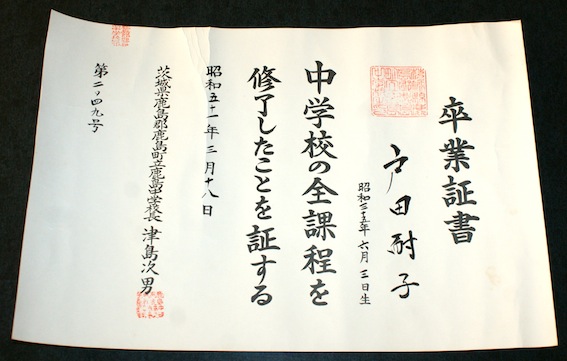 卒業証書
戸田耐子
昭和三十五年六月三日生
中学校の全課程を
修了したことを証する
昭和五十一年三月十八日
茨城県鹿島郡鹿島町立鹿島中学校長 津島次男
第二〇四九号